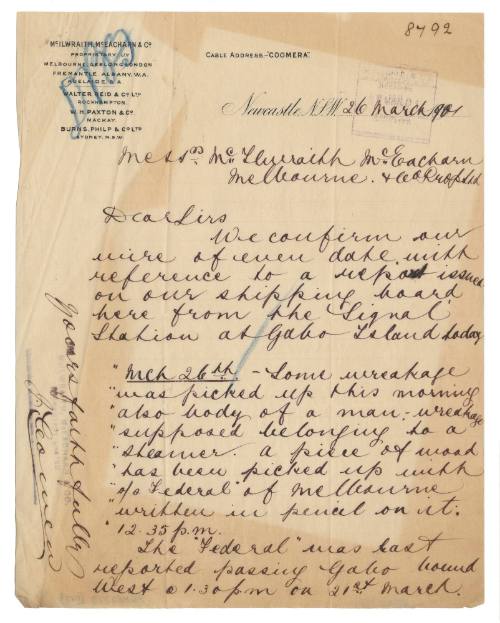 8792
McILWRAITH, McEACHARN & Co
PROPRIETARY LTD
MELBOURNE, GEELONG, LONDON
FREMANTLE, ALBANY, W.A.
ADELAIDE, S.A.
WALTER REID & Co LTD
ROCKHAMPTON.
W. H. PAXTON & Co
MACKAY.
BURNS, PHILP & Co LTD
SYDNEY, N.S.W.
CABLE ADDRESS-"COOMERA"
Newcastle N.S.W. 26 March 1901
Messrs McIlwraith McEacharn
Melbourne. & Co Prop Ltd
Dear Sirs
We confirm our
wire of even date with
reference to a report issued
on our shipping board
here from the Signal
Station at Gabo Island today
"Mch 26th - Some wreakage
"was picked up this morning
"also body of a man - wreakage
"supposed belonging to a
"steamer. a piece of wood
"has been picked up with
"s/s Federal" of Melbourne
"written in pencil on it.
"12.35 p.m.
The "Federal" was last
reported passing Gabo bound
West @ 1.30 pm on 21st March.
Yours faithfully